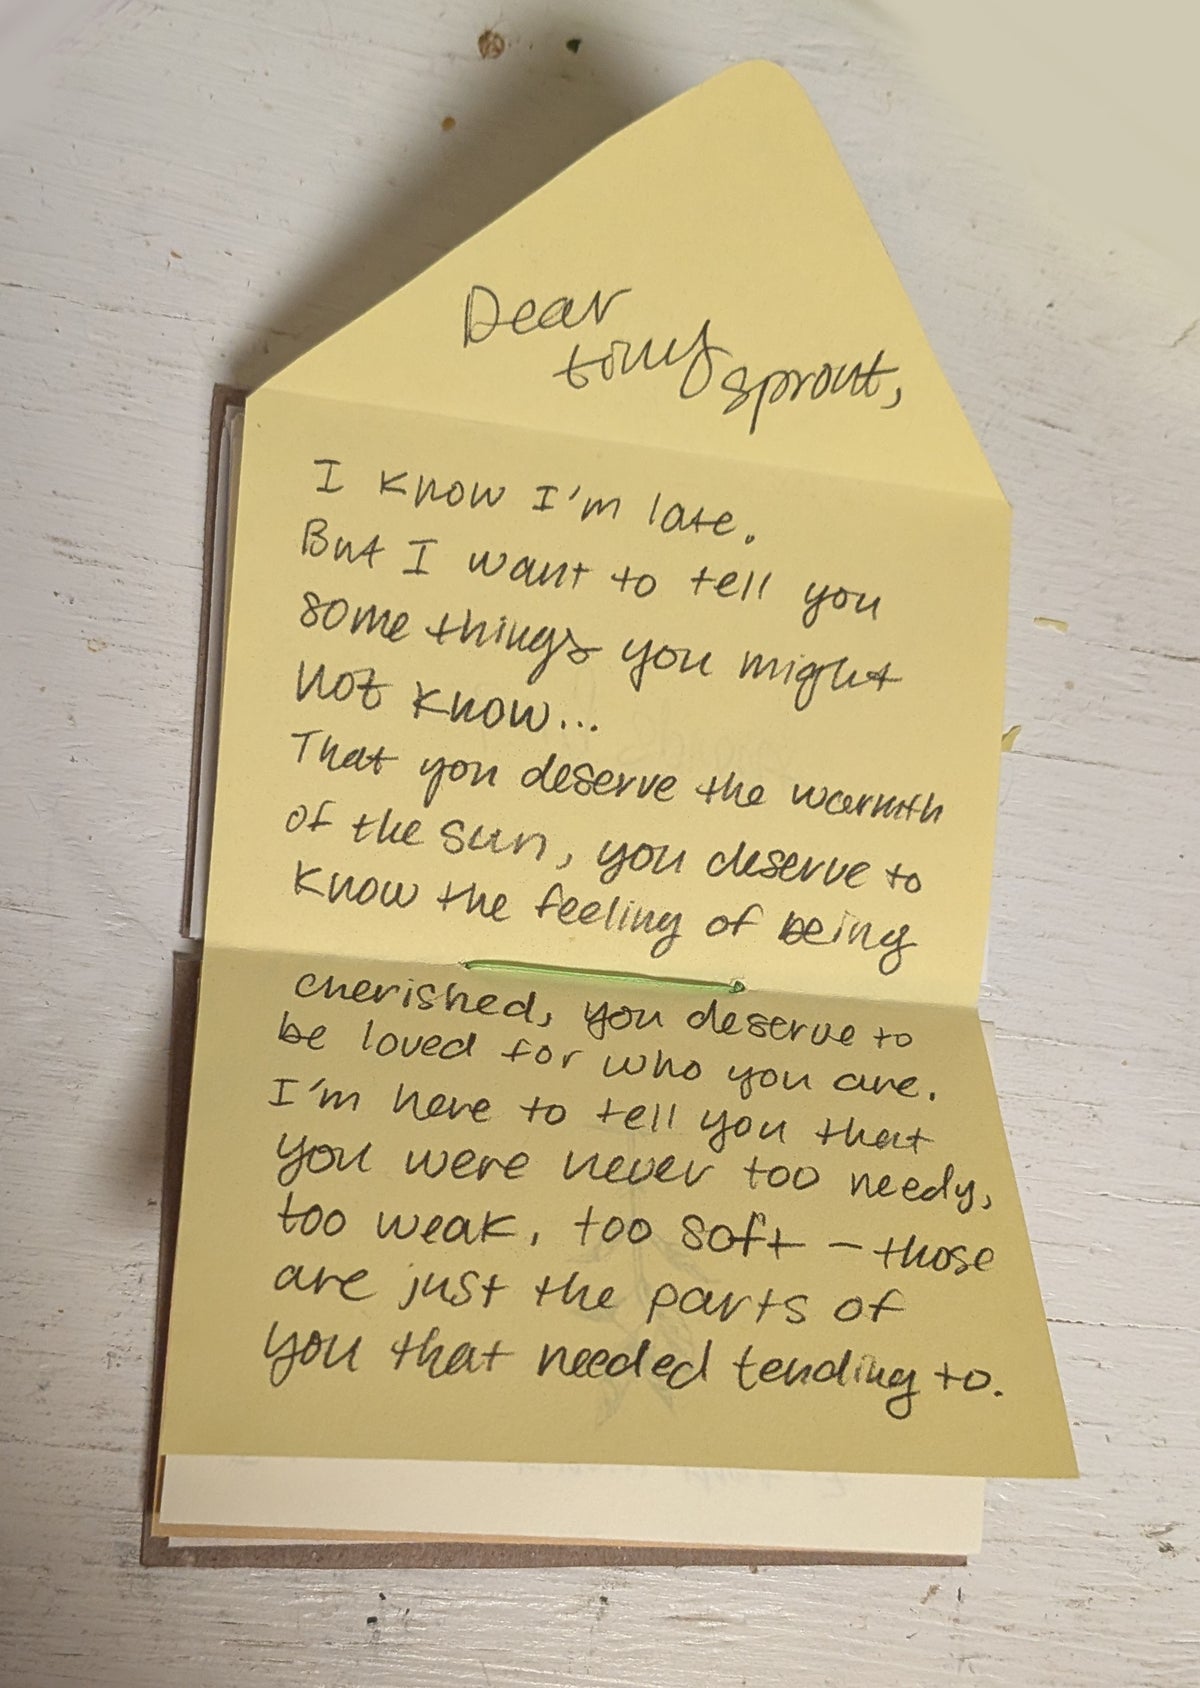 Dear
tiny sprout,
I know I'm late.
But I want to tell you
some things you might
not know...
That you deserve the warmth
of the sun, you deserve to
know the feeling of being
cherished, you deserve to
be loved for who you are.
I'm here to tell you that
you were never too needy,
too weak, too soft – those
are just the parts of
you that needed tending to.